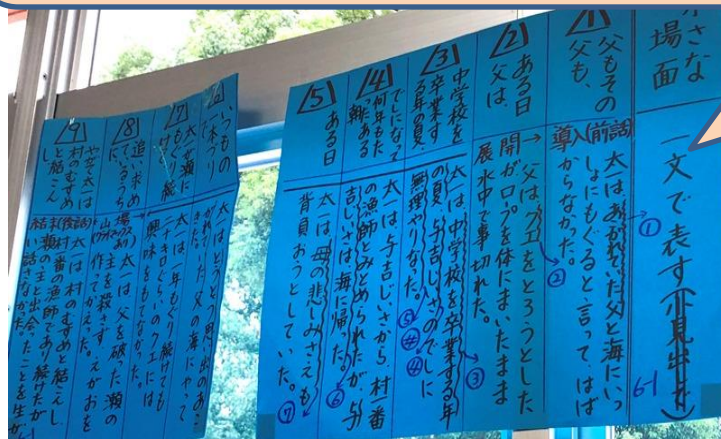 小さな場面
一文で表す(小見出し)
6-1
①
1
父もその父も、
導入(前話)
太一はあこがれていた父と海にいっしょにもぐると言って、はばからなかった。
2
ある日父は、
開
展
父は、クエをとろうとしたがロープを体にまいたまま水中で事切れた。
②
3
中学校を卒業する年の夏、
太一は、中学校を卒業する年の夏、与吉じいさのでしに無理やりなった。
③
④
⑤
4
でしになって何年もたったある朝
太一は、与吉じいさから、村一番の漁師とみとめられたが、与吉じいさは海に帰った。
⑥
5
ある日
太一は、母の悲しみさえも背負おうとしていた。
⑦
6
いつもの
太一はとうとう思い出のあこがれていた父の海にやって
7
太一が瀬に もぐり続け
太一は、一年もぐり続けても
二十キロぐらいのクエには興味をもてなかった。
8
追い求めているうちに、
山場
太一は、父を破った瀬の主を殺さず、えがおを作ってかえった。
9
やがて太一は村のむすめと結こんし
(後話)
太一は、村のむすめと結こんし、村一番の漁師であり続けたが
瀬の主と出会ったことを生がい話さなかった。